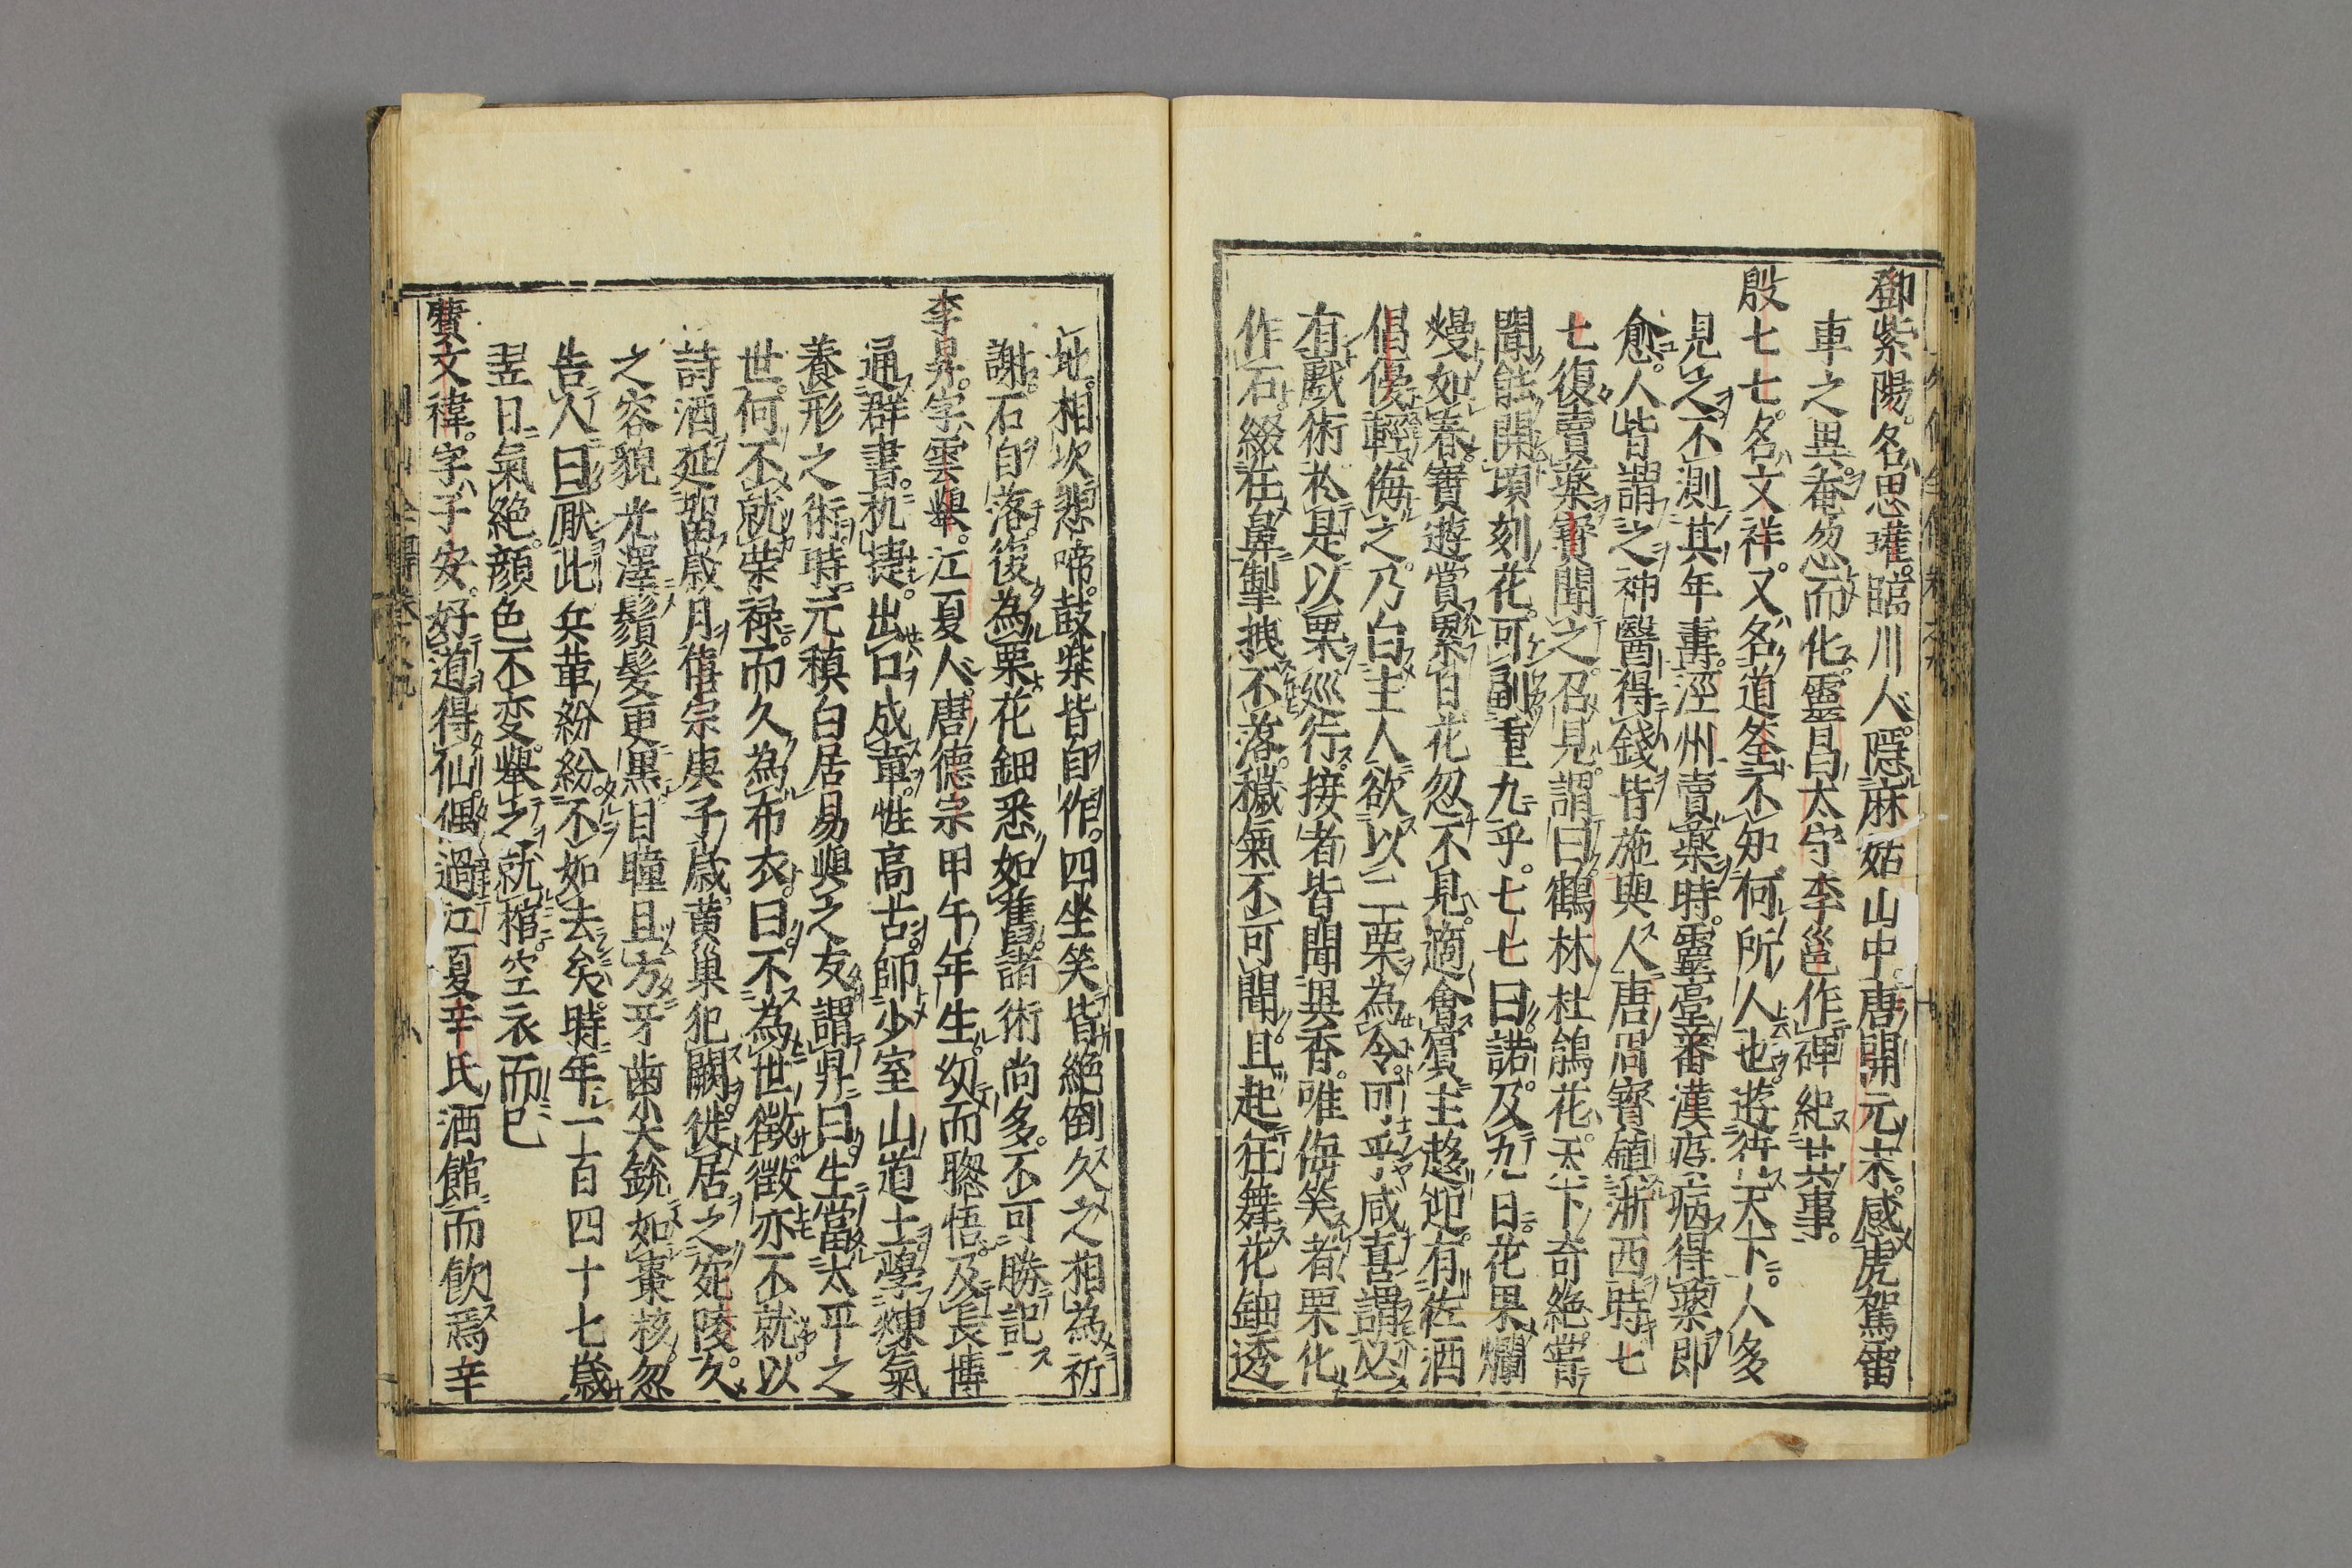 鄧紫陽。名思瓘。臨川人。隱麻姑山中。唐開元末。感虎駕雷
車之異。奄忽而化。靈昌太守李邕作碑紀其事。
殷七七。名文祥。又名道筌。不知何所人也。遊行天下。人多
見之。不測其年壽。涇州賣藥時。靈臺蕃漢疫病得藥即
愈。人皆謂之神醫。得錢皆施與人。唐周寶鎮浙西時七
七復賣藥。寶聞之。召見。謂曰。鶴林杜鵑花。天下奇絶。嘗
聞能開頃刻花。可副重九乎。七七曰諾。及九日。花果爛
熳如春。寶遊賞累日。花忽不見。適會賓主趨迎。有佐酒
倡優輕侮之。乃白主人。欲以二栗為令。可乎。咸喜。謂必
有戲術。於是以栗巡行。接者皆聞異香。唯侮笑者栗化
作石。綴在鼻。掣拽不落。穢氣不可聞。且起狂舞花鈿透
地。相次悲啼。鼓樂皆自作。四坐笑皆絶倒。久之相為祈
謝。石自落。復為栗。花鈿悉如舊。諸術尚多。不可勝記
李昇。字雲舉。江夏人。唐德宗甲午年生。幼而聰悟。及長博
通群書。机捷。出口成章。性高古。師少室山道士。學煉氣
養形之術。時元稹白居易與之友。謂昇曰。生當太平之
世。何不就榮禄。而久為布衣。曰。不為世徵。徵亦不就。以
詩酒延留歲月。僖宗庚子歲。黄巢犯闕。徙居之宛陵。久
之容貌光澤鬚髮更黒。目瞳且方。牙齒尖銳如棗核。忽
告人曰。厭此兵革紛紛。不如去矣。時年一百四十七歲
翌日氣絶。顏色不変。舉之就棺。空衣而已
費文禕。字子安。好道得仙。偶過江夏辛氏酒館。而飲焉。辛